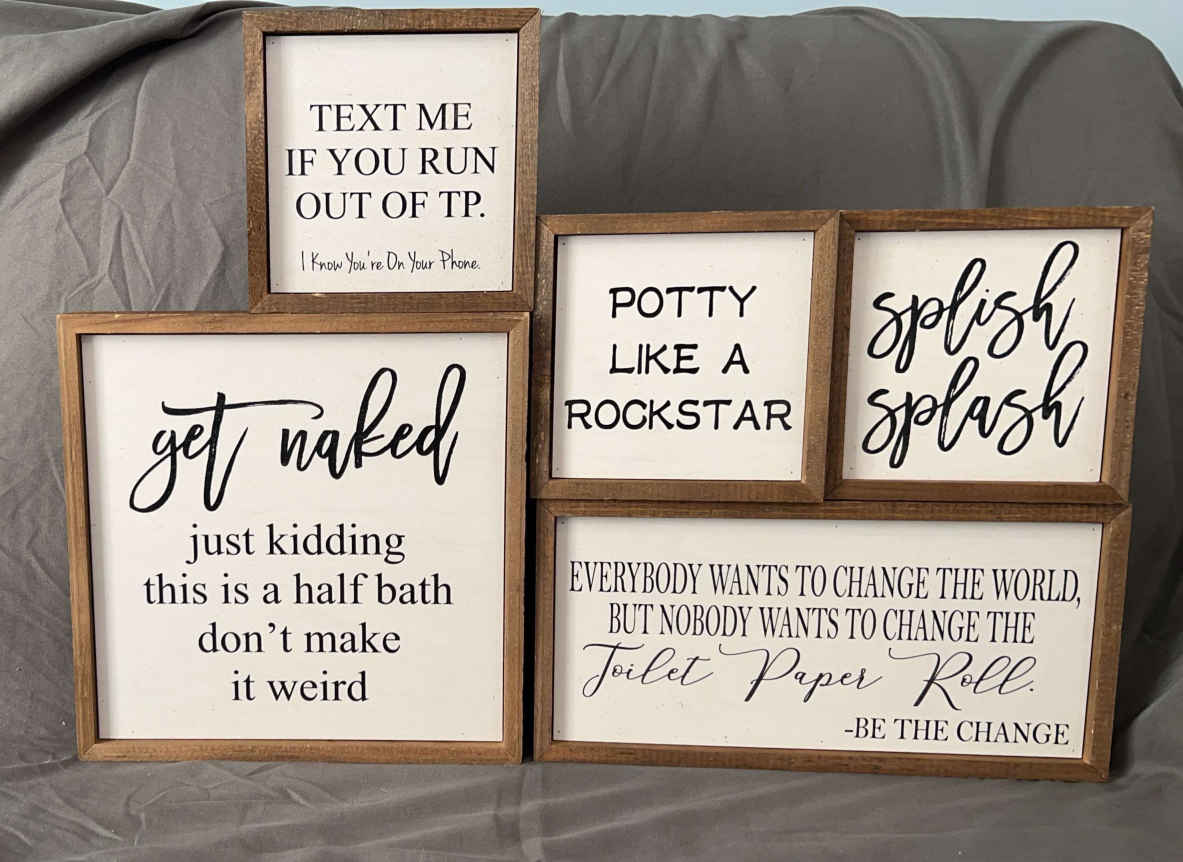 TEXT ME
IF YOU RUN
OUT OF TP.
I Know You're On Your Phone.
get naked
just kidding
this is a half bath
don't make
it weird
POTTY
LIKE A
ROCKSTAR
splish
splash
EVERYBODY WANTS TO CHANGE THE WORLD,
BUT NOBODY WANTS TO CHANGE THE
Toilet Paper Roll.
-BE THE CHANGE